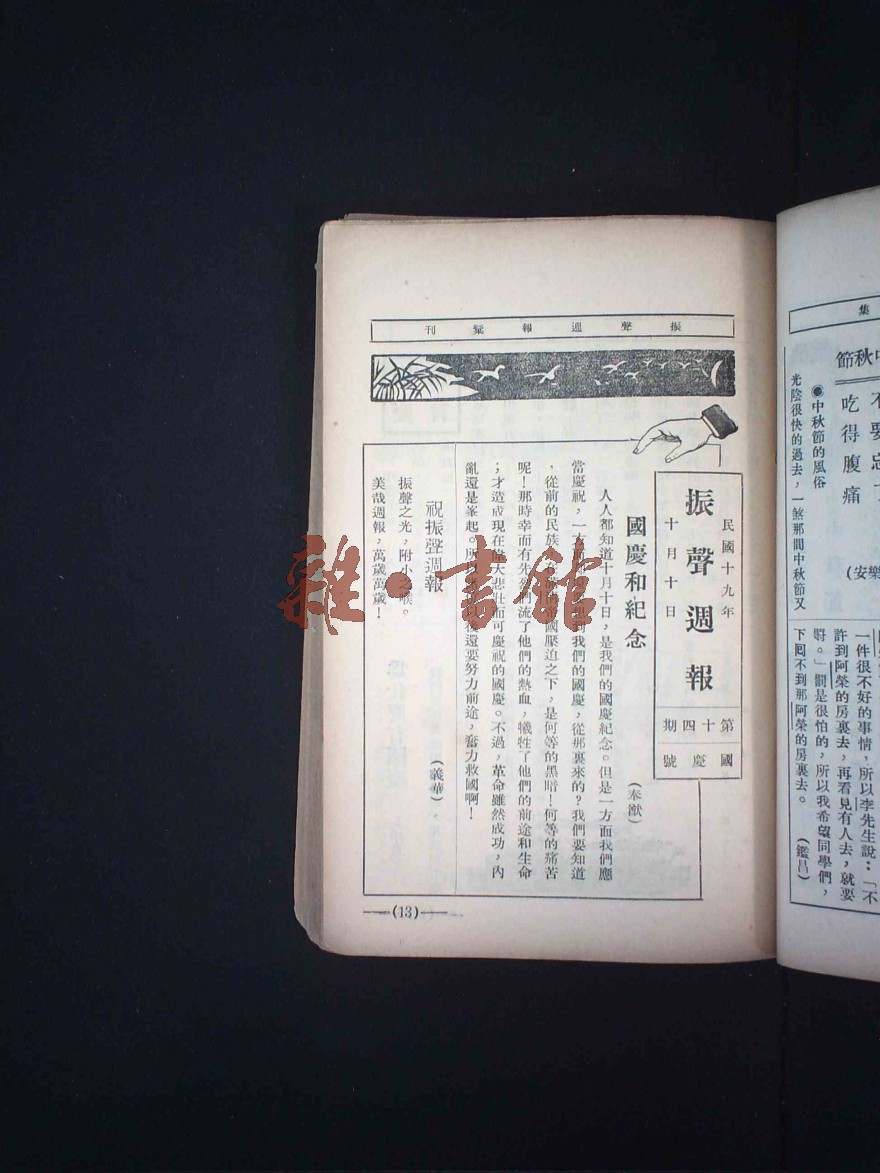 集
中秋節
吃得腹痛
(安樂
●中秋節的風俗
光陰很快的過去,一煞那間中秋節又
一件很不好的事情,所以李先生說:「不
許到阿榮的房裏去,再看見有人去,就要
罰。」罰是很怕的,所以我希望同學們,
下回不到那阿榮的房裏去。
(鑑昌)
振聲週報彙刊
民國十九年
十月十日
振聲週報
第十四期
國慶號
國慶和紀念
(奉猷)
人人都知道十月十日,是我們的國慶紀念。但是一方面我們應
當慶祝,一方面 想到我們的國慶,從那裏來的?我們要知道
,從前的民族, 帝國壓迫之下,是何等的黑暗!何等的痛苦
呢!那時幸而有先 們流了他們的熱血,犧牲了他們的前途和生命
;才造成現在偉大悲壯而可慶祝的國慶。不過,革命雖然成功,內
亂還是峯起。所 以後還要努力前途,奮力救國啊!
祝振聲週報
(義華)
振聲之光,附小之喉。
美哉週報,萬歲萬歲!
(13)
雜·書館